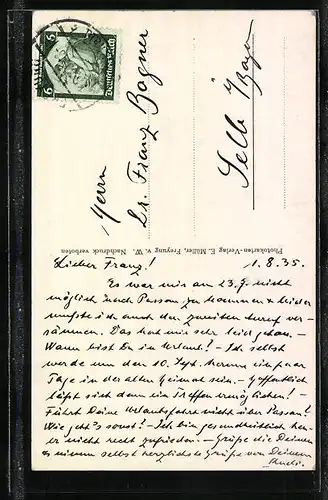 Herrn
Dr. Franz Bogner
Selb i/Bayern
Photokarten-Verlag E. Müller, Freyung v. W. Nachdruck verboten
6 Deutsches Reich 6
Lieber Franz! 1.8.35.
Es war mir am 23.7. nicht
möglich nach Passau zu kommen & leider
mußte ich auch den zweiten Anruf ver-
säumen. Das hat mir sehr leid getan. -
Wann bist Du in Urlaub? - Ich selbst
werde um den 10. Sept. herum ein paar
Tage in der alten Heimat sein. - Hoffentlich
läßt sich dann ein Treffen ermöglichen! -
Führt Deine Urlaubsfahrt nicht über Passau?
Wie geht's sonst? - Ich bin gesundheitlich
nicht recht zufrieden. - Grüße die Deinen
selbst herzlichste Grüße von Deinem